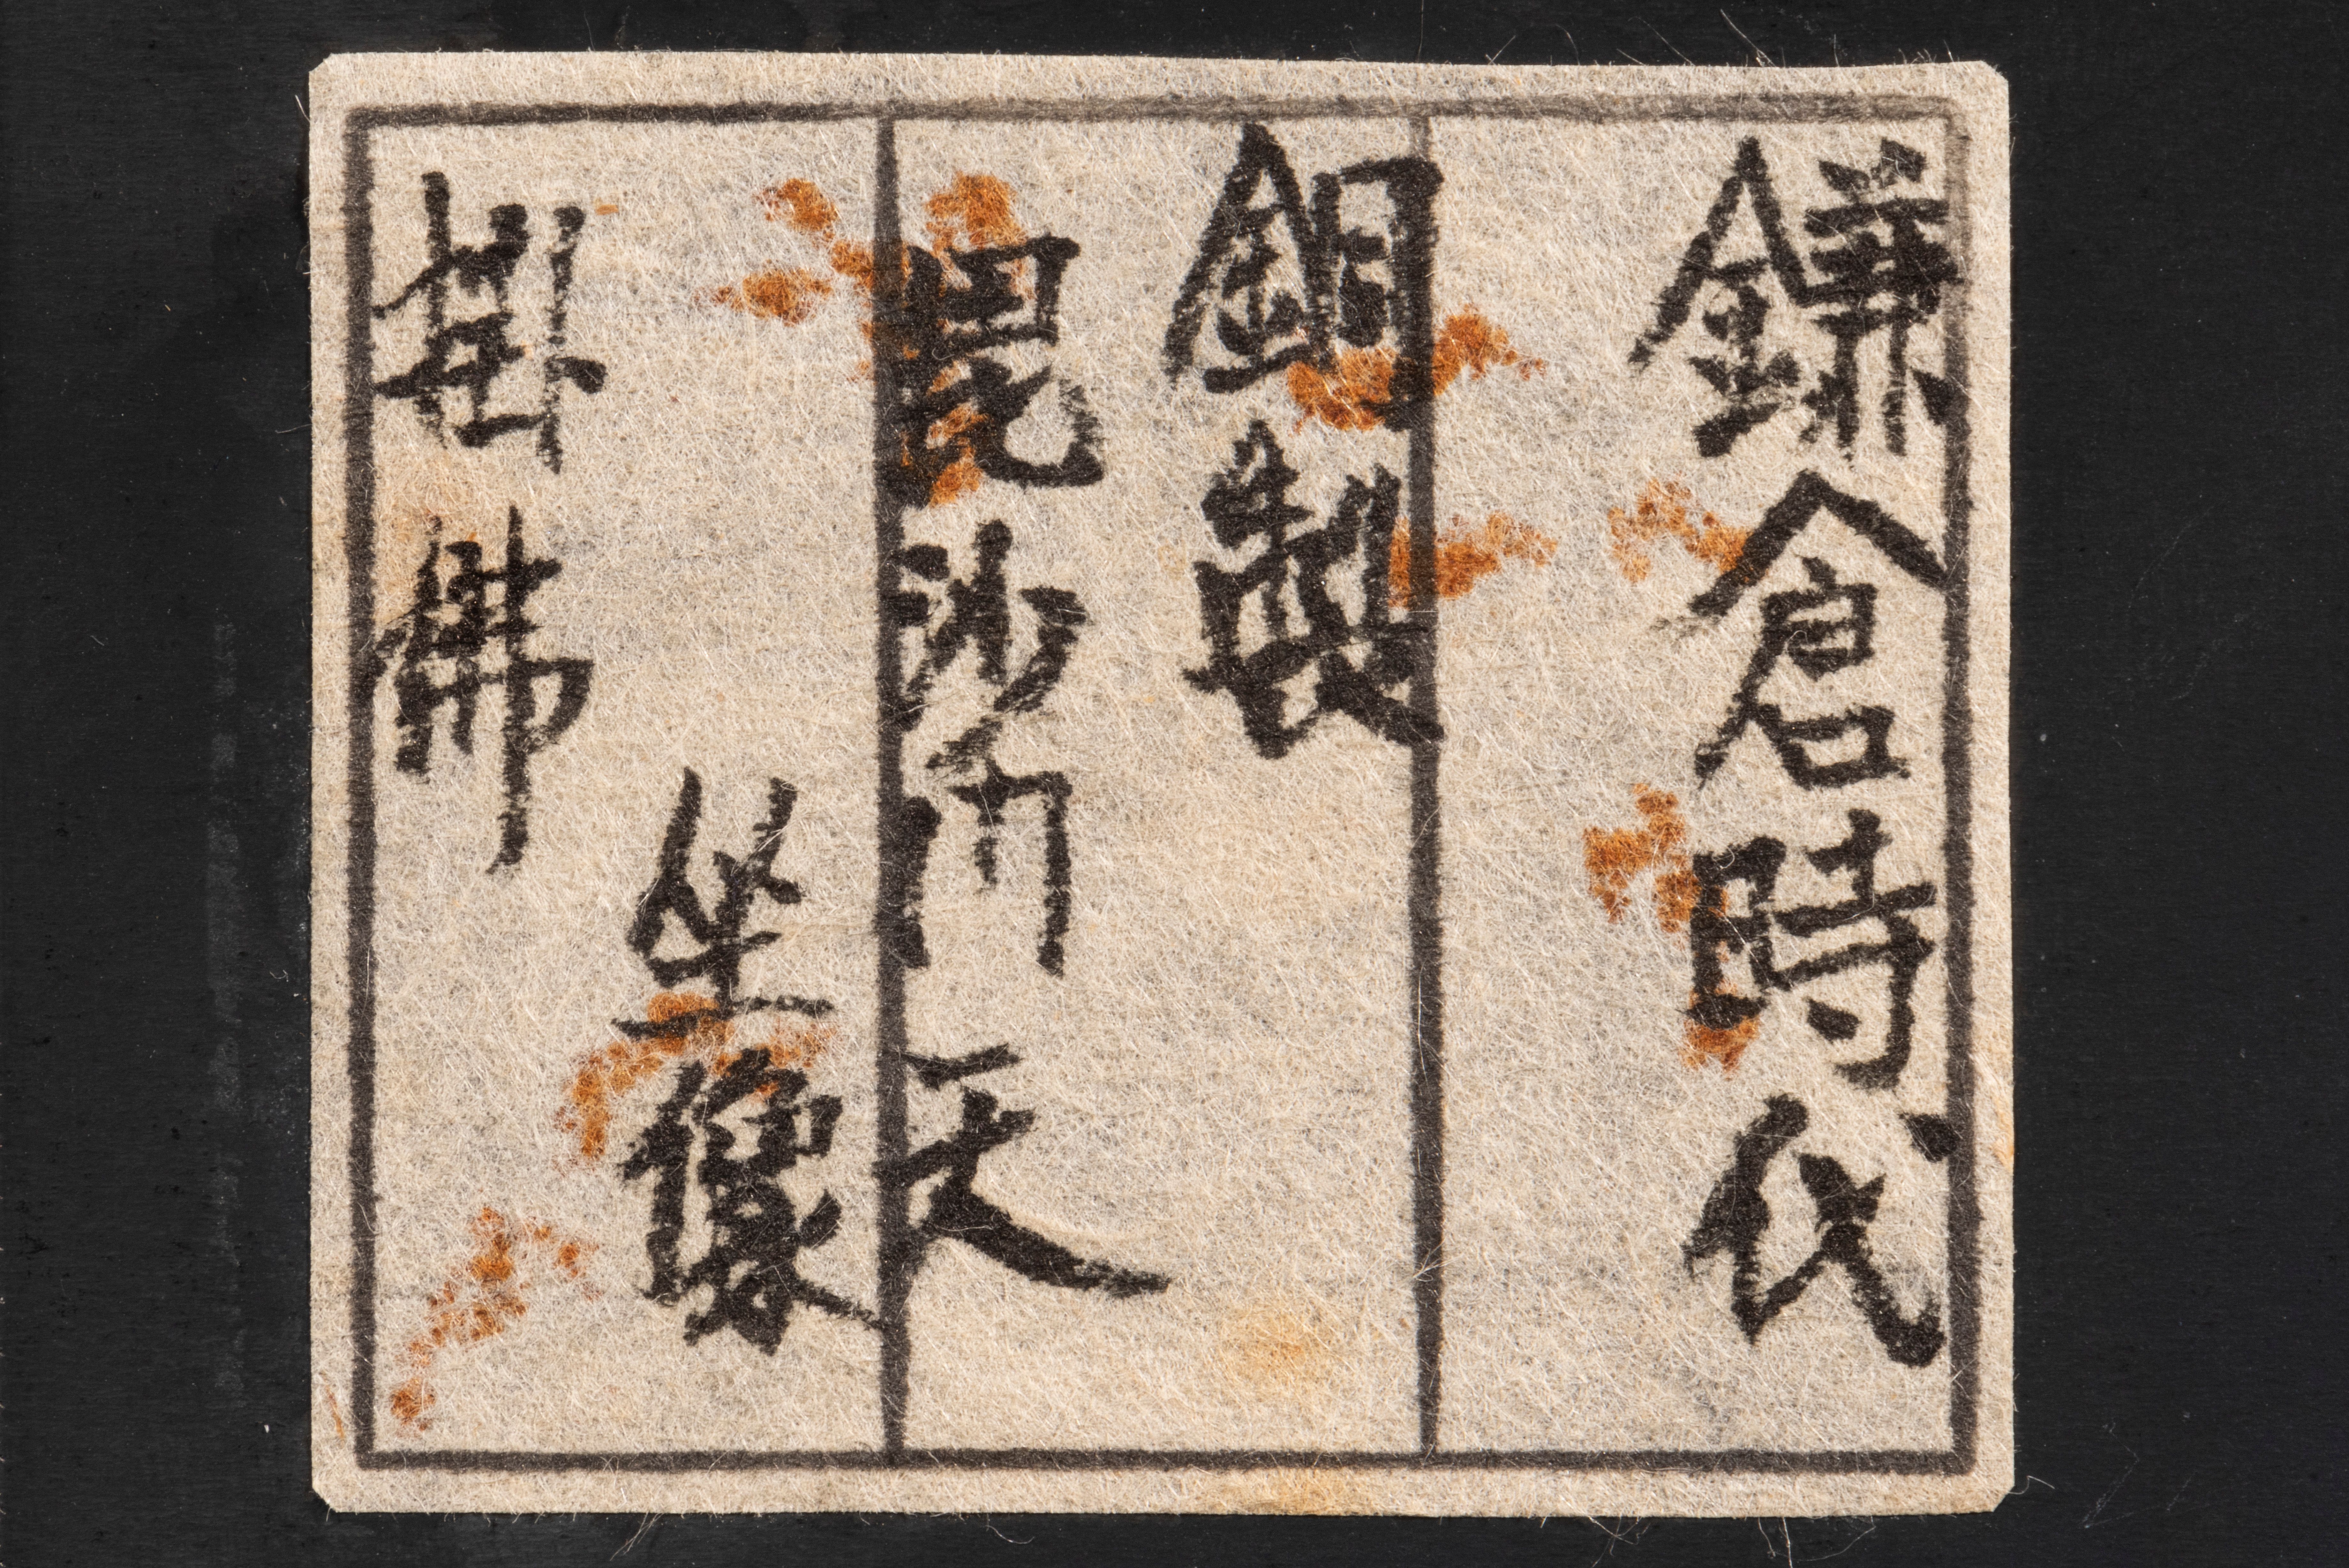 鎌倉時代
銅製
毘沙門天
坐像
掛佛